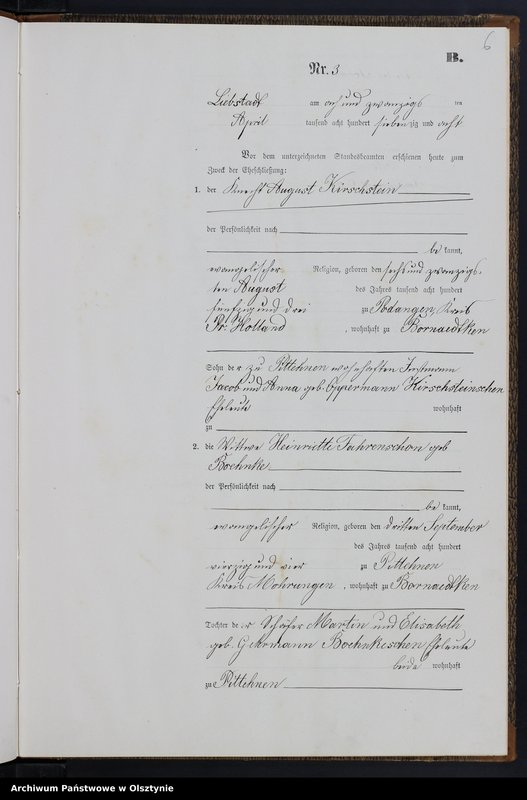 6
B.
Nr. 3
Liebstadt am acht und zwanzigs ten
April tausend acht hundert sieben zig und acht
Vor dem unterzeichneten Standesbeamten erschienen heute zum
Zweck der Eheschließung:
1. der Knecht August Kirschstein
der Persönlichkeit nach
be kannt,
evangelischer Religion, geboren den sechs und zwanzigs-
ten August des Jahres tausend acht hundert
fünfzig und drei zu Podangen, Kreis
Pr. Holland, wohnhaft zu Bornaedtken
Sohn der zu Pittehnen wohnhaften Instmann
Jacob und Anna geb. Oppermann Kirschsteinschen
Eheleute wohnhaft
zu
2. die Wittwe Heinriette Fahrenschon geb
Boehnke
der Persönlichkeit nach
be kannt,
evangelischer Religion, geboren den dritten September
des Jahres tausend acht hundert
vierzig und vier zu Pittehnen
Kreis Mohrungen, wohnhaft zu Bornaedtken
Tochter der Schäfer Martin und Elisabeth
geb. Gehrmann Boehnkeschen Eheleute
beide wohnhaft
zu Pittehnen
Archiwum Państwowe w Olsztynie